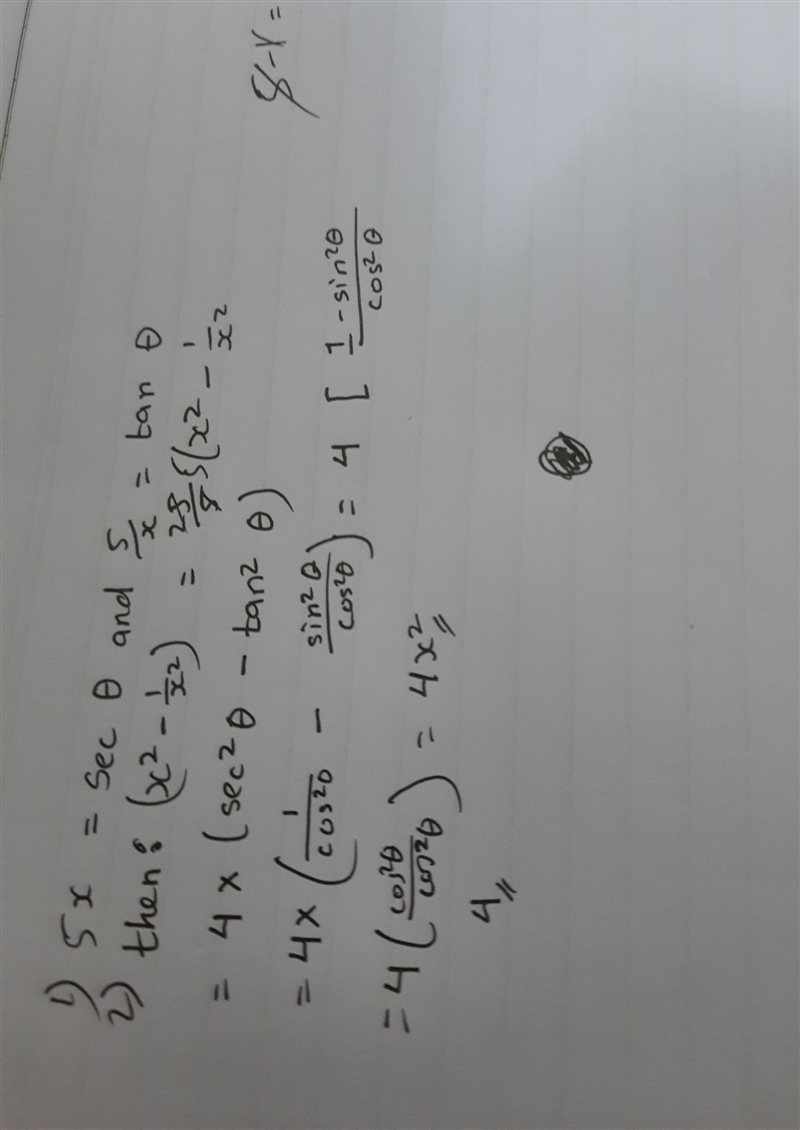 1) 5x = sec θ and 5/x = tan θ
2) then: (x² - 1/x²) = (x² - 1/x²
= 4 × (sec² θ - tan² θ)
= 4× (1/cos²θ - sin²θ/cos²θ) = 4 [1 - sin²θ/cos²θ
= 4 (cos²θ/cos²θ) = 4x²
4